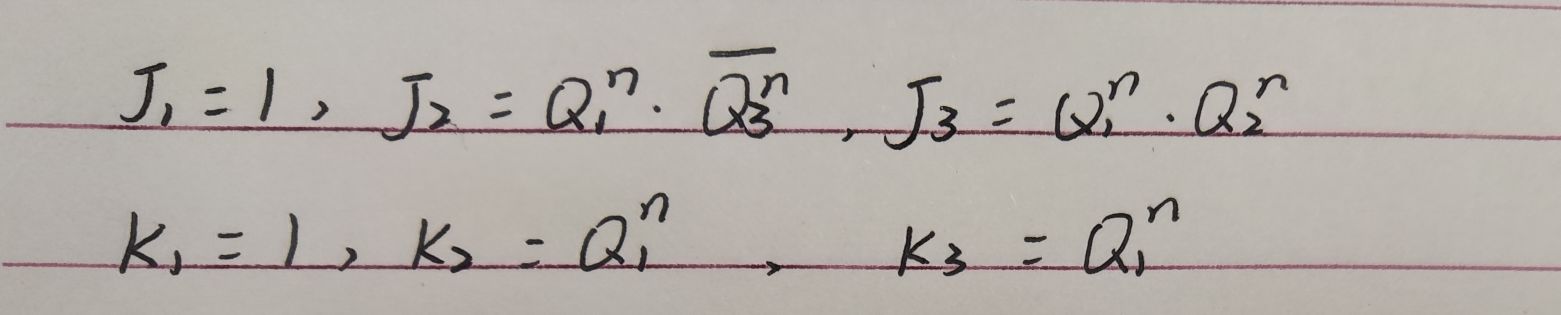 J₁ = 1, J₂ = Q₁ⁿ · \overline{Q₃ⁿ}, J₃ = Q₁ⁿ · Q₂ⁿ
K₁ = 1, K₂ = Q₁ⁿ, K₃ = Q₁ⁿ